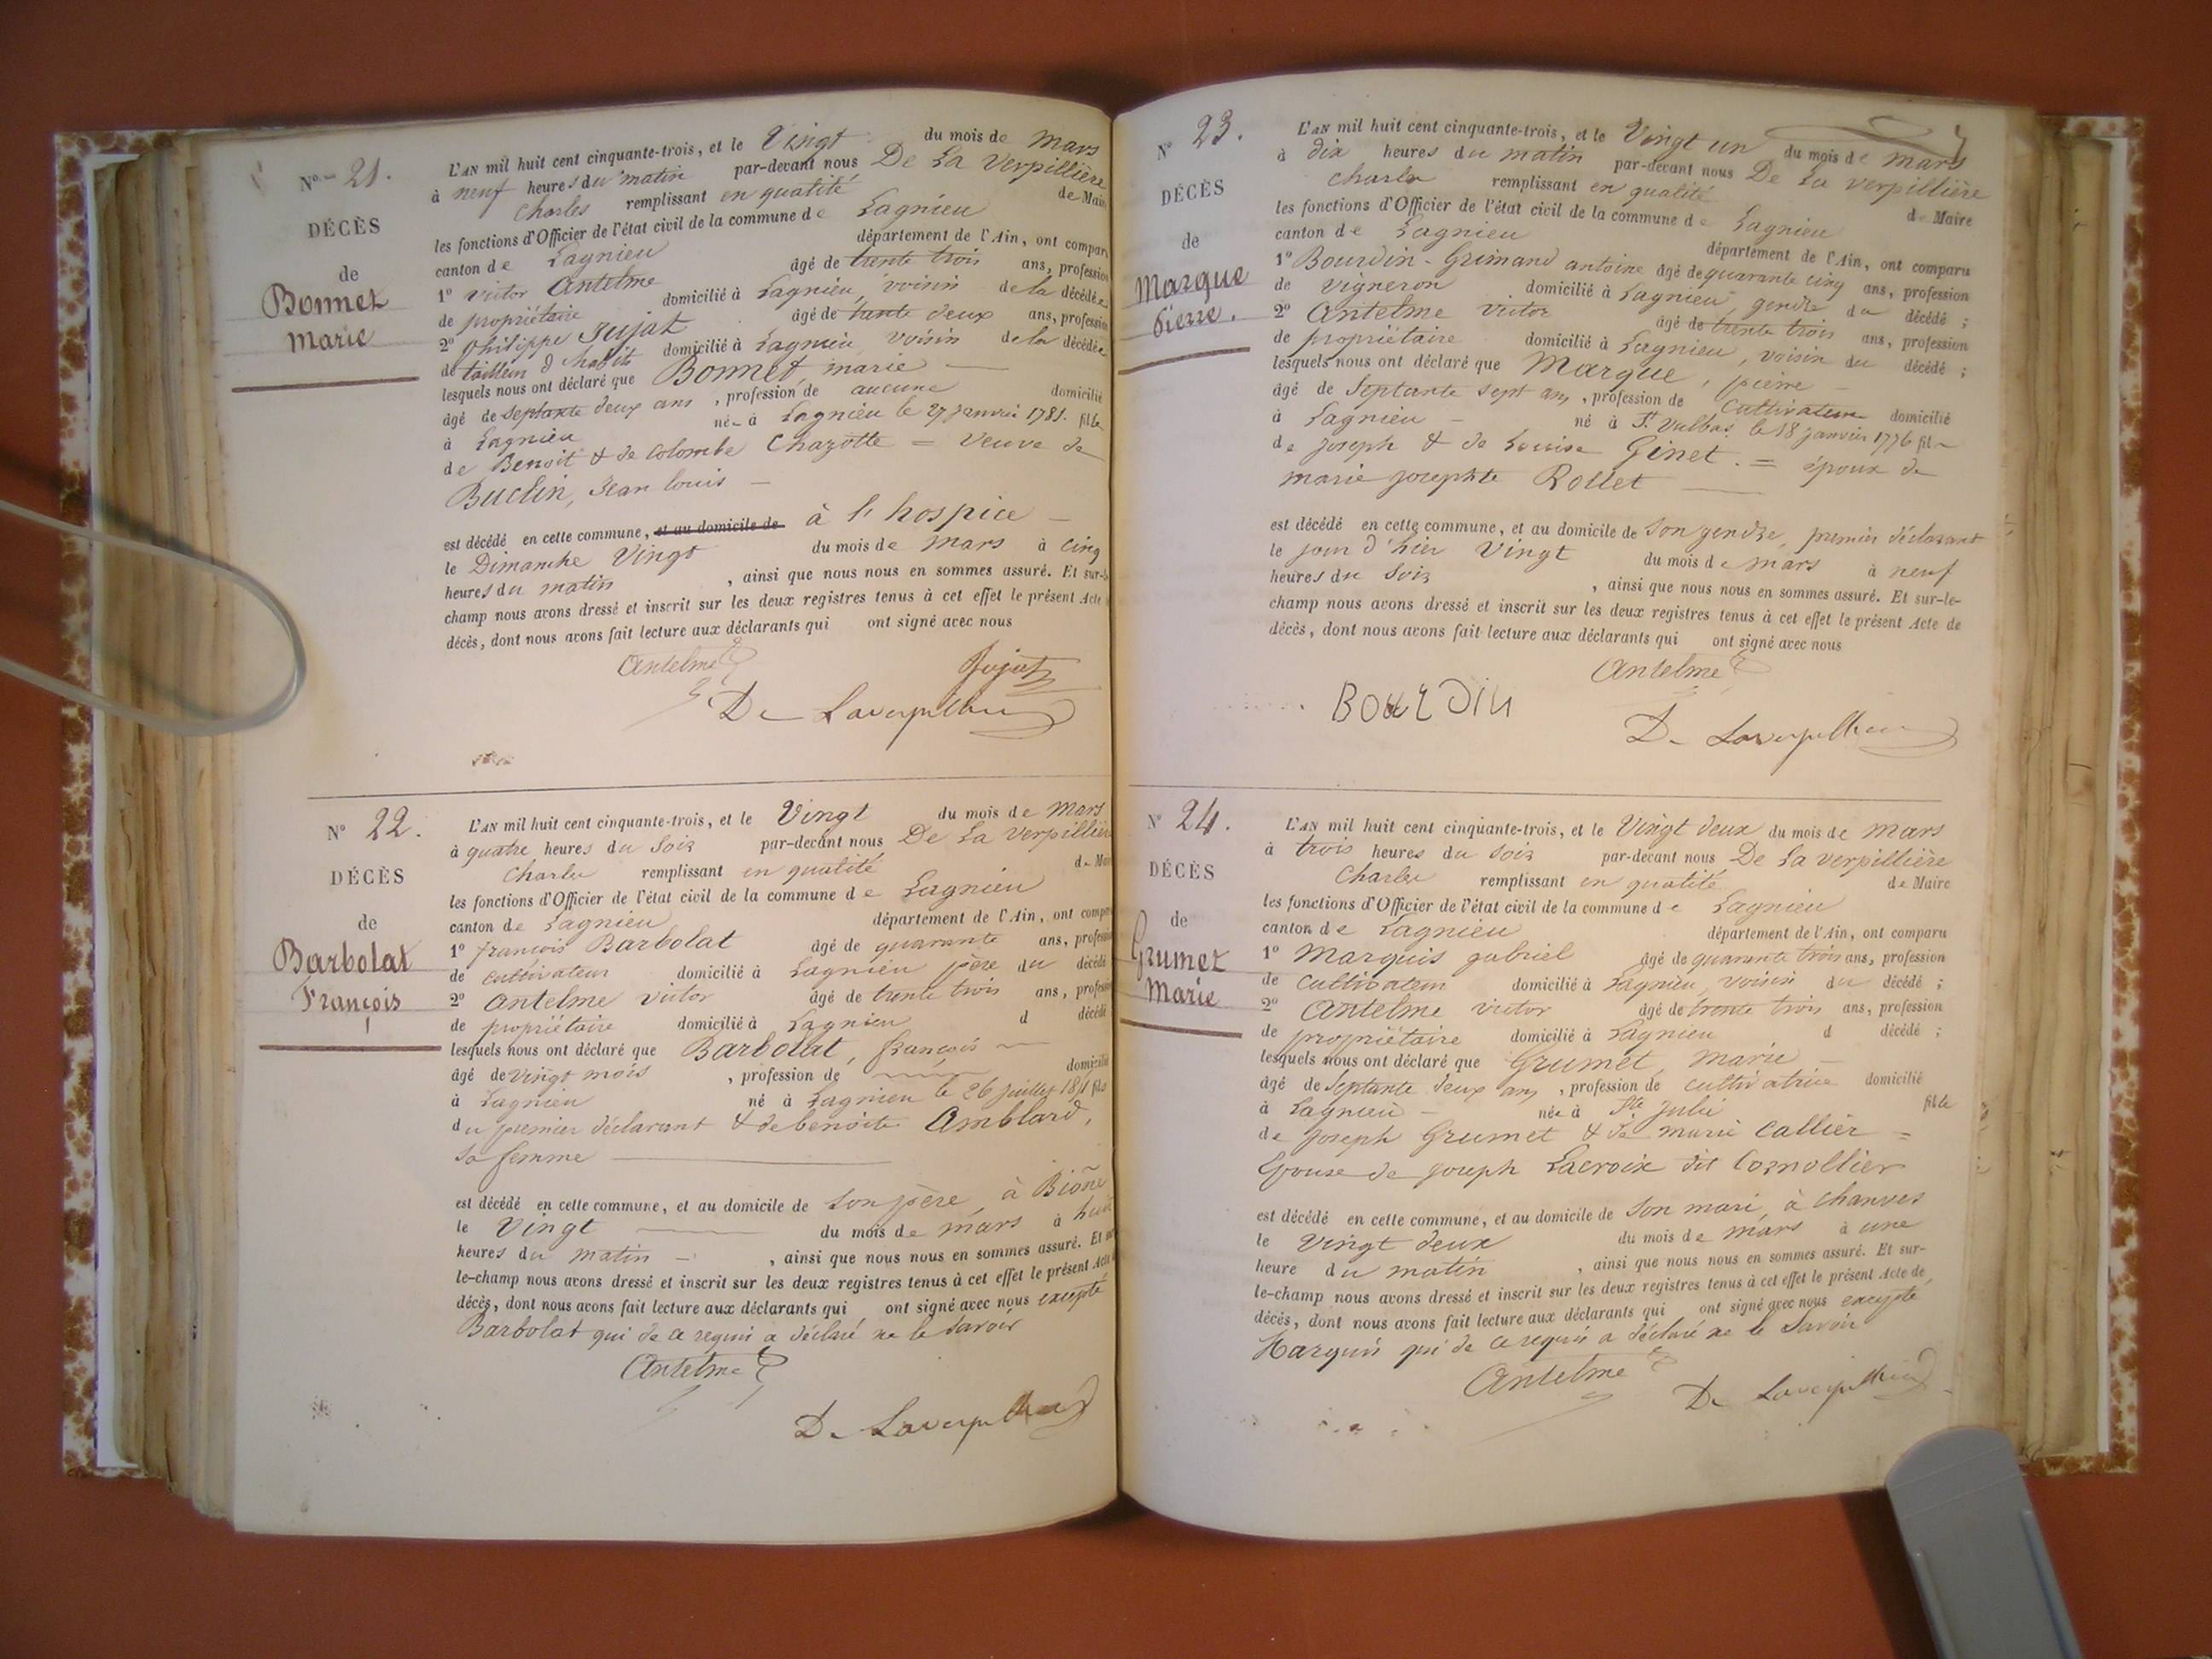 N° 21.
DÉCÈS
de
Bonnet
Marie
L'AN mil huit cent cinquante-trois, et le Vingt du mois de Mars
à neuf heures du matin par-devant nous De La Verpillière
Charles remplissant en qualité de Mair
les fonctions d'Officier de l'état civil de la commune de Lagnieu
canton de Lagnieu département de l'Ain, ont compar
1° Victor Antelme âgé de trente trois ans, profession
de propriétaire domicilié à Lagnieu, voisin de la décédée
2° Philippe Jujat âgé de trente deux ans, profession
de tailleur d'habits domicilié à Lagnieu, voisin de la décédée
lesquels nous ont déclaré que Bonnet, marie —
âgé de septante deux ans, profession de aucune domicilié
à Lagnieu née à Lagnieu le 27 janvier 1781. fille
de Benoit & de Colombe Chazotte = Veuve de
Buclin, Jean louis —
est décédé en cette commune, et au domicile de à l'hospice —
le Dimanche Vingt du mois de Mars à cinq
heures du matin, ainsi que nous nous en sommes assuré. Et sur-l
champ nous avons dressé et inscrit sur les deux registres tenus à cet effet le présent Acte
décès, dont nous avons fait lecture aux déclarants qui ont signé avec nous
Antelme Jujat
De Laverpillière
N° 22.
DÉCÈS
de
Barbolat
François
L'AN mil huit cent cinquante-trois, et le Vingt du mois de Mars
à quatre heures du Soir par-devant nous De La Verpillière
Charles remplissant en qualité de Mai
les fonctions d'Officier de l'état civil de la commune de Lagnieu
canton de Lagnieu département de l'Ain, ont compar
1° françois Barbolat âgé de quarante ans, profession
de cultivateur domicilié à Lagnieu père du décédé
2° Antelme victor âgé de trente trois ans, profession
de propriétaire domicilié à Lagnieu d décédé
lesquels nous ont déclaré que Barbolat, françois —
âgé de vingt mois, profession de — domicilié
à Lagnieu né à Lagnieu le 26 juillet 1851 fils
du premier déclarant & de benoite Amblard,
sa femme —
est décédé en cette commune, et au domicile de son père, à
le Vingt — du mois de mars à huit
heures du matin —, ainsi que nous nous en sommes assuré. Et sur
le-champ nous avons dressé et inscrit sur les deux registres tenus à cet effet le présent Acte
décès, dont nous avons fait lecture aux déclarants qui ont signé avec nous excepté
Barbolat qui de ce requis a déclaré ne le savoir
Antelme
De Laverpillière
N° 23.
DÉCÈS
de
Marque
Pierre.
L'AN mil huit cent cinquante-trois, et le Vingt un du mois de mars
à dix heures du matin par-devant nous De La Verpillière
Charles remplissant en qualité de Maire
les fonctions d'Officier de l'état civil de la commune de Lagnieu
canton de Lagnieu département de l'Ain, ont comparu
1° Bourdin-Grimand antoine âgé de quarante cinq ans, profession
de vigneron domicilié à Lagnieu, gendre du décédé ;
2° Antelme victor âgé de trente trois ans, profession
de propriétaire domicilié à Lagnieu, voisin du décédé ;
lesquels nous ont déclaré que Marque, pierre —
âgé de Septante sept ans, profession de Cultivateur domicilié
à Lagnieu — né à St. Vulbas le 18 janvier 1776 fils
de Joseph & de Louise Ginet. = époux de
marie josephte Rollet —
est décédé en cette commune, et au domicile de son gendre, premier déclarant
le jour d'hier Vingt du mois de mars à neuf
heures du Soir, ainsi que nous nous en sommes assuré. Et sur-le-
champ nous avons dressé et inscrit sur les deux registres tenus à cet effet le présent Acte de
décès, dont nous avons fait lecture aux déclarants qui ont signé avec nous
Antelme
Bourdin
De Laverpillière
N° 24.
DÉCÈS
de
Grumet
Marie
L'AN mil huit cent cinquante-trois, et le Vingt deux du mois de mars
à trois heures du soir par-devant nous De La Verpillière
Charles remplissant en qualité de Maire
les fonctions d'Officier de l'état civil de la commune de Lagnieu
canton de Lagnieu département de l'Ain, ont comparu
1° Marquis gabriel âgé de quarante trois ans, profession
de cultivateur domicilié à Lagnieu, voisin du décédé ;
2° Antelme victor âgé de trente trois ans, profession
de propriétaire domicilié à Lagnieu d décédé ;
lesquels nous ont déclaré que Grumet, Marie —
âgé de Septante deux ans, profession de cultivatrice domicilié
à Lagnieu — née à Ste Julie fille
de joseph Grumet & de marie Callier =
Epouse de joseph Lacroix dit Cornollier
est décédé en cette commune, et au domicile de son mari, à Chanves
le Vingt deux du mois de mars à une
heure du matin, ainsi que nous nous en sommes assuré. Et sur-
le-champ nous avons dressé et inscrit sur les deux registres tenus à cet effet le présent Acte de
décès, dont nous avons fait lecture aux déclarants qui ont signé avec nous excepté
Marquis qui de ce requis a déclaré ne le savoir
Antelme De Laverpillière